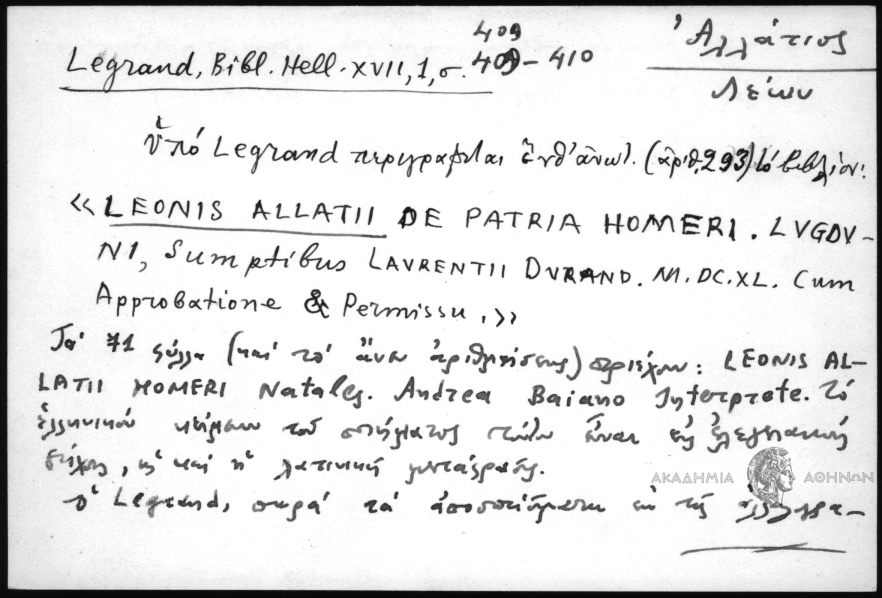 Ἀλλάτιος
Λέων
409
Legrand, Bibl. Hell. XVII, 1, σ. 409 – 410
ὑπό Legrand περιγράφεται ἐνθ' ἀνωτ. (ἀριθ. 293) τό βιβλίον:
«LEONIS ALLATII DE PATRIA HOMERI. LVGDV-
NI, Sumptibus LAVRENTII DVRAND. M.DC.XL. Cum
Approbatione & Permissu.»
Τά 71 φύλλα (καί τό ἄνευ ἀριθμήσεως) περιέχουν: LEONIS AL-
LATII HOMERI Natales. Andrea Baiano Interprete. Τό
ἑλληνικόν κείμενον τοῦ ποιήματος τούτου εἶναι εἰς ἐλεγειακούς
στίχους, ὡς καί ἡ λατινική μετάφρασις.
ὁ Legrand, παρά τά ἀποσπάσματα ἐκ τῆς ἀλληλογρα-
ΑΚΑΔΗΜΙΑ ΑΘΗΝΩΝ